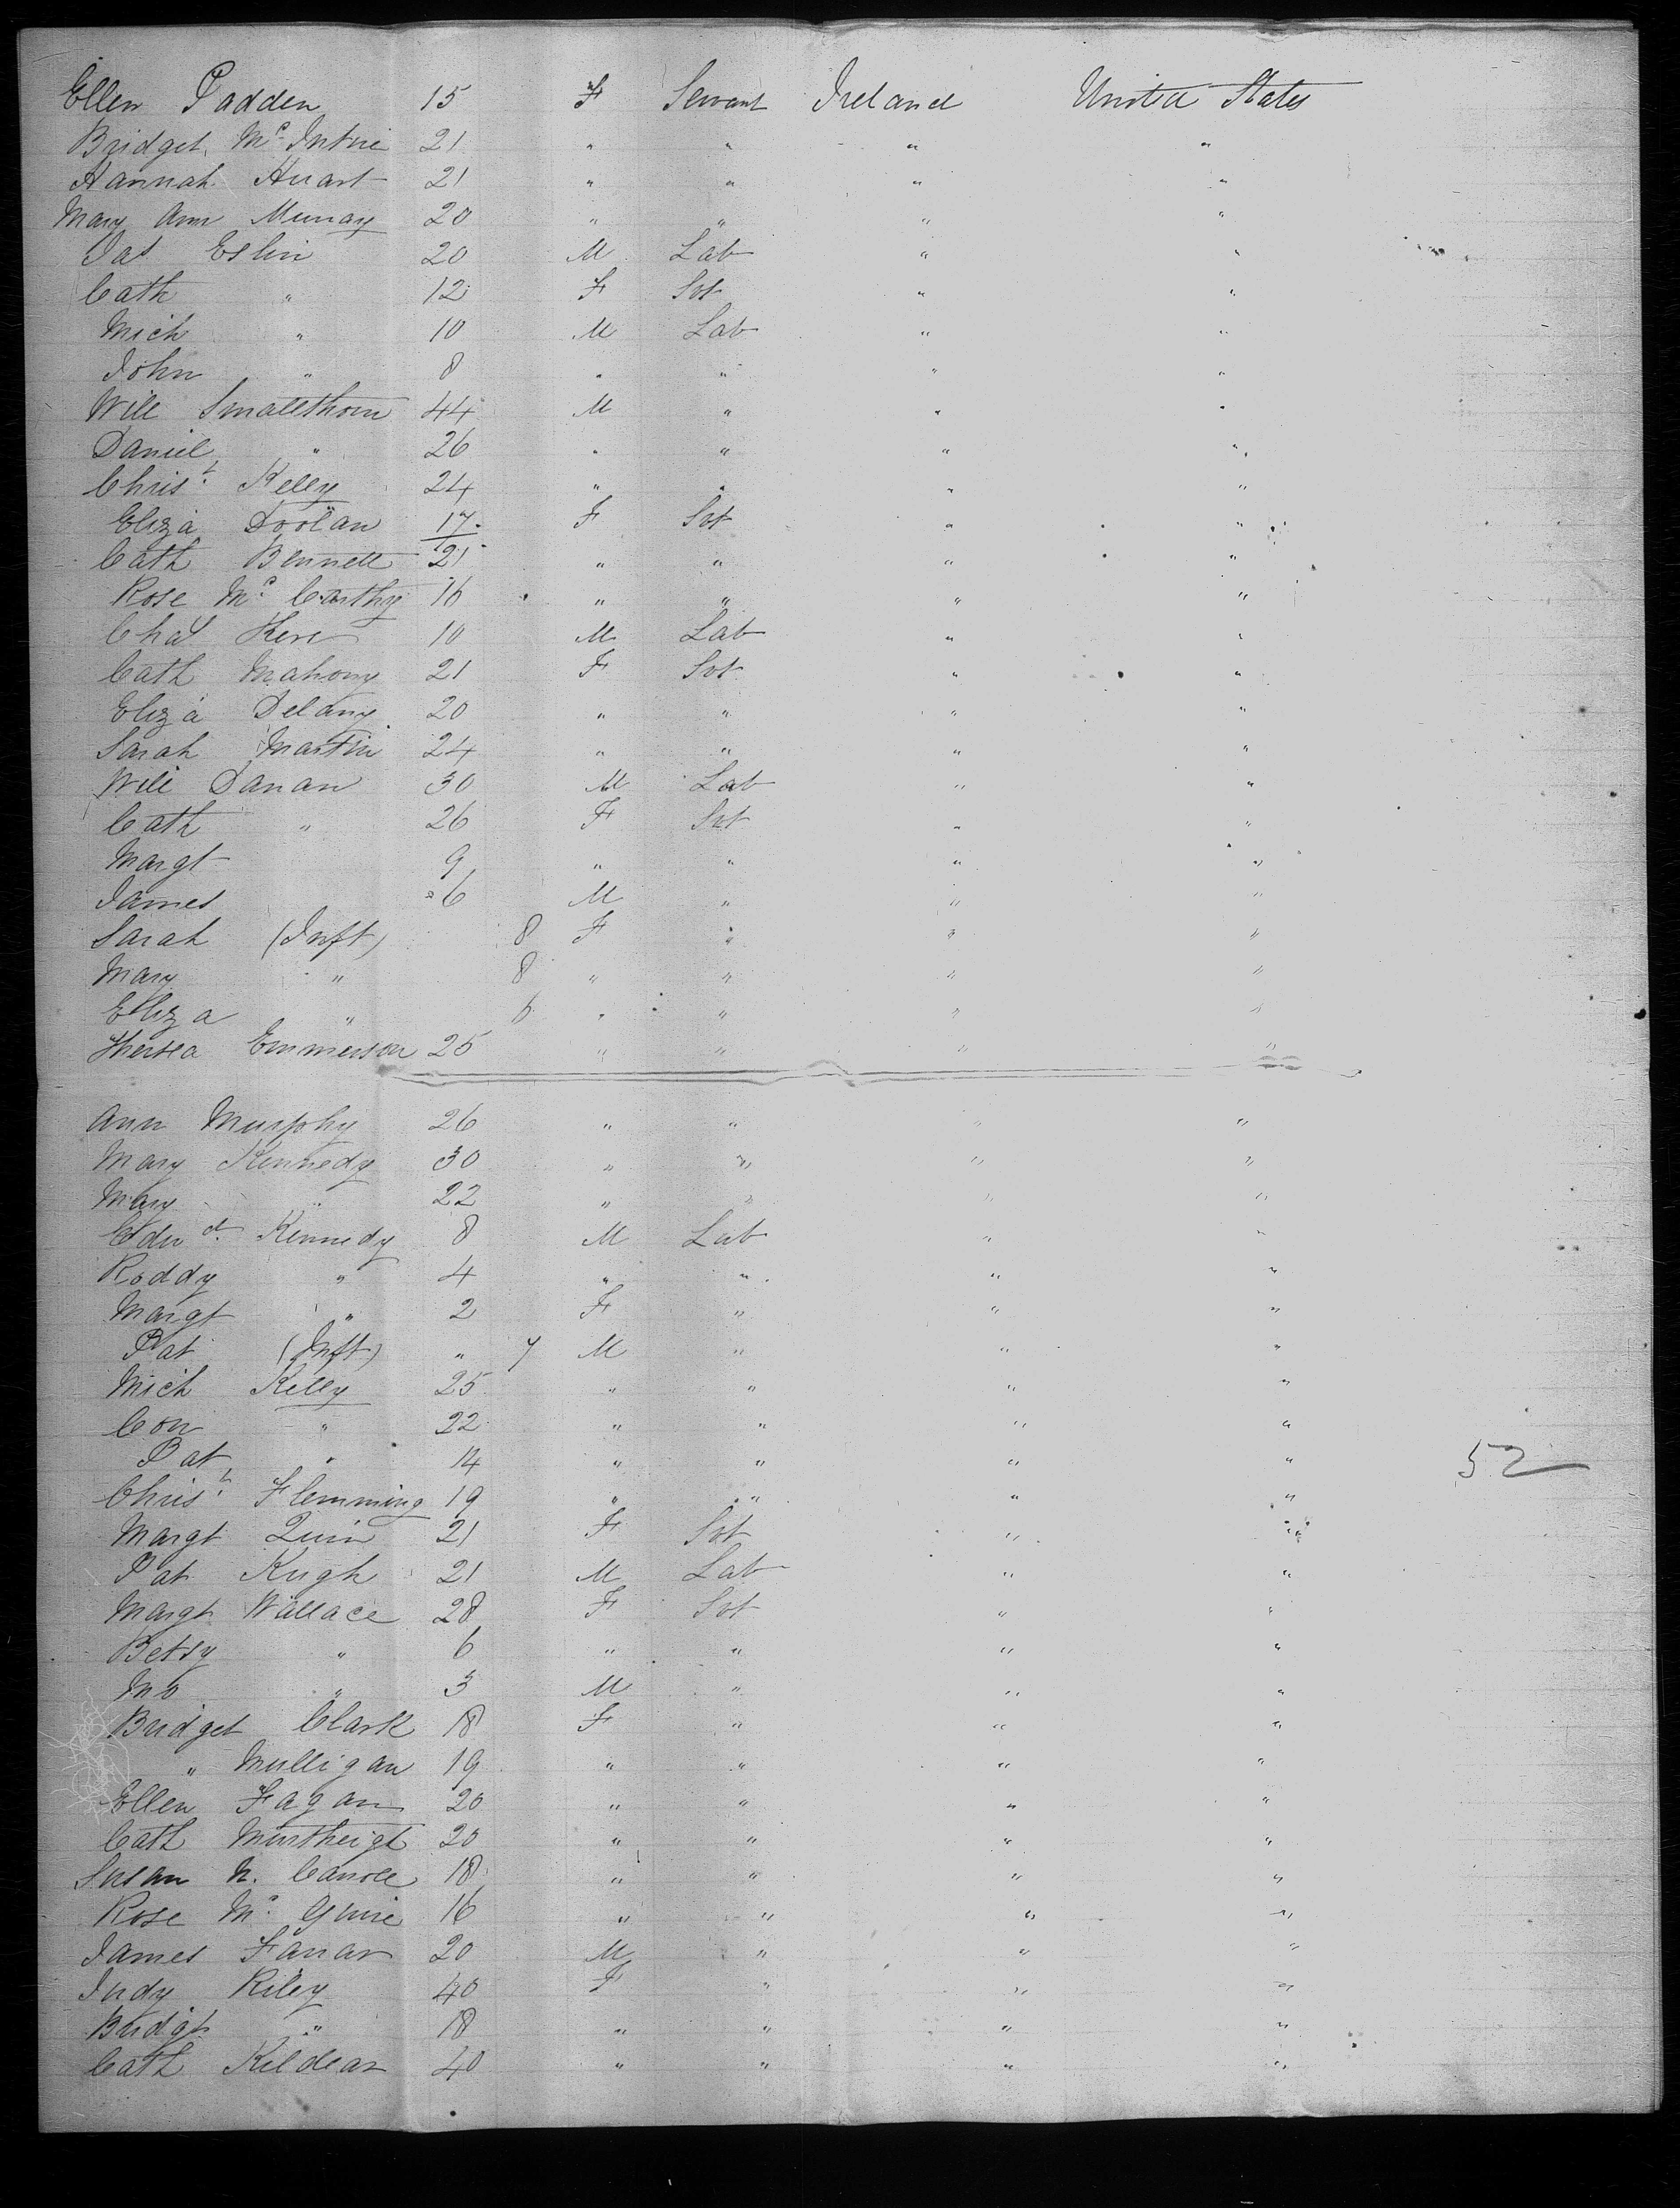 Ellen Padden 15 F Servant Ireland United States
Bridget Mc Intrie 21 " " " "
Hannah Huart 21 " " " "
Mary Ann Murray 20 " " " "
Pat Eslin 20 M Lab " "
Cath " 12 F Svt " "
Mich " 10 M Lab " "
John " 8 " " " "
Will Smallthorn 44 M " " "
Daniel " 26 " " " "
Christ. Kelly 24 " " " "
Eliza Doolan 17 F Svt " "
Cath Bennett 21 " " " "
Rose Mc Carthy 16 " " " "
Chas Kerr 10 M Lab " "
Cath Mahony 21 F Svt " "
Eliza Delany 20 " " " "
Sarah Martin 24 " " " "
Will Danan 30 M Lab " "
Cath " 26 F Svt " "
Margt 9 " " " "
James 6 M " " "
Sarah (Inft) 8 F " " "
Mary " 8 " " " "
Eliza " 6 " " " "
Thersea Emmerson 25 " " " "
Ann Murphy 26 " " " "
Mary Kennedy 30 " " " "
Mary " 22 " " " "
Edwd. Kennedy 8 M Lab " "
Roddy " 4 " " " "
Margt " 2 F " " "
Pat (Inft) " 7 M " " "
Mich Kelly 25 " " " "
Con " 22 " " " "
Pat " 14 " " " " 52
Christ. Flemming 19 " " " "
Margt Quin 21 F Svt " "
Pat Kugh 21 M Lab " "
Margt Wallace 28 F Svt " "
Betsy " 6 " " " "
" 3 M " " "
Bridget Clark 18 F " " "
" Mulligan 19 " " " "
Ellen Fagan 20 " " " "
Cath 20 " " " "
Susan Carroll 18 " " " "
Rose Mc Guire 16 " " " "
James Farrar 20 M " " "
Judy Riley 40 F " " "
Bridgt " 18 " " " "
Cath Kildear 40 " " " "